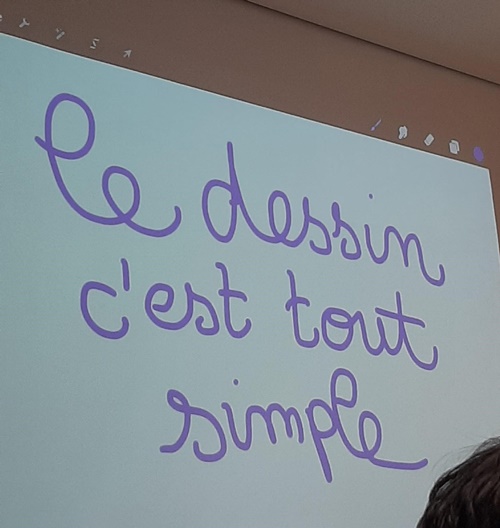 Le dessin
c'est tout
simple